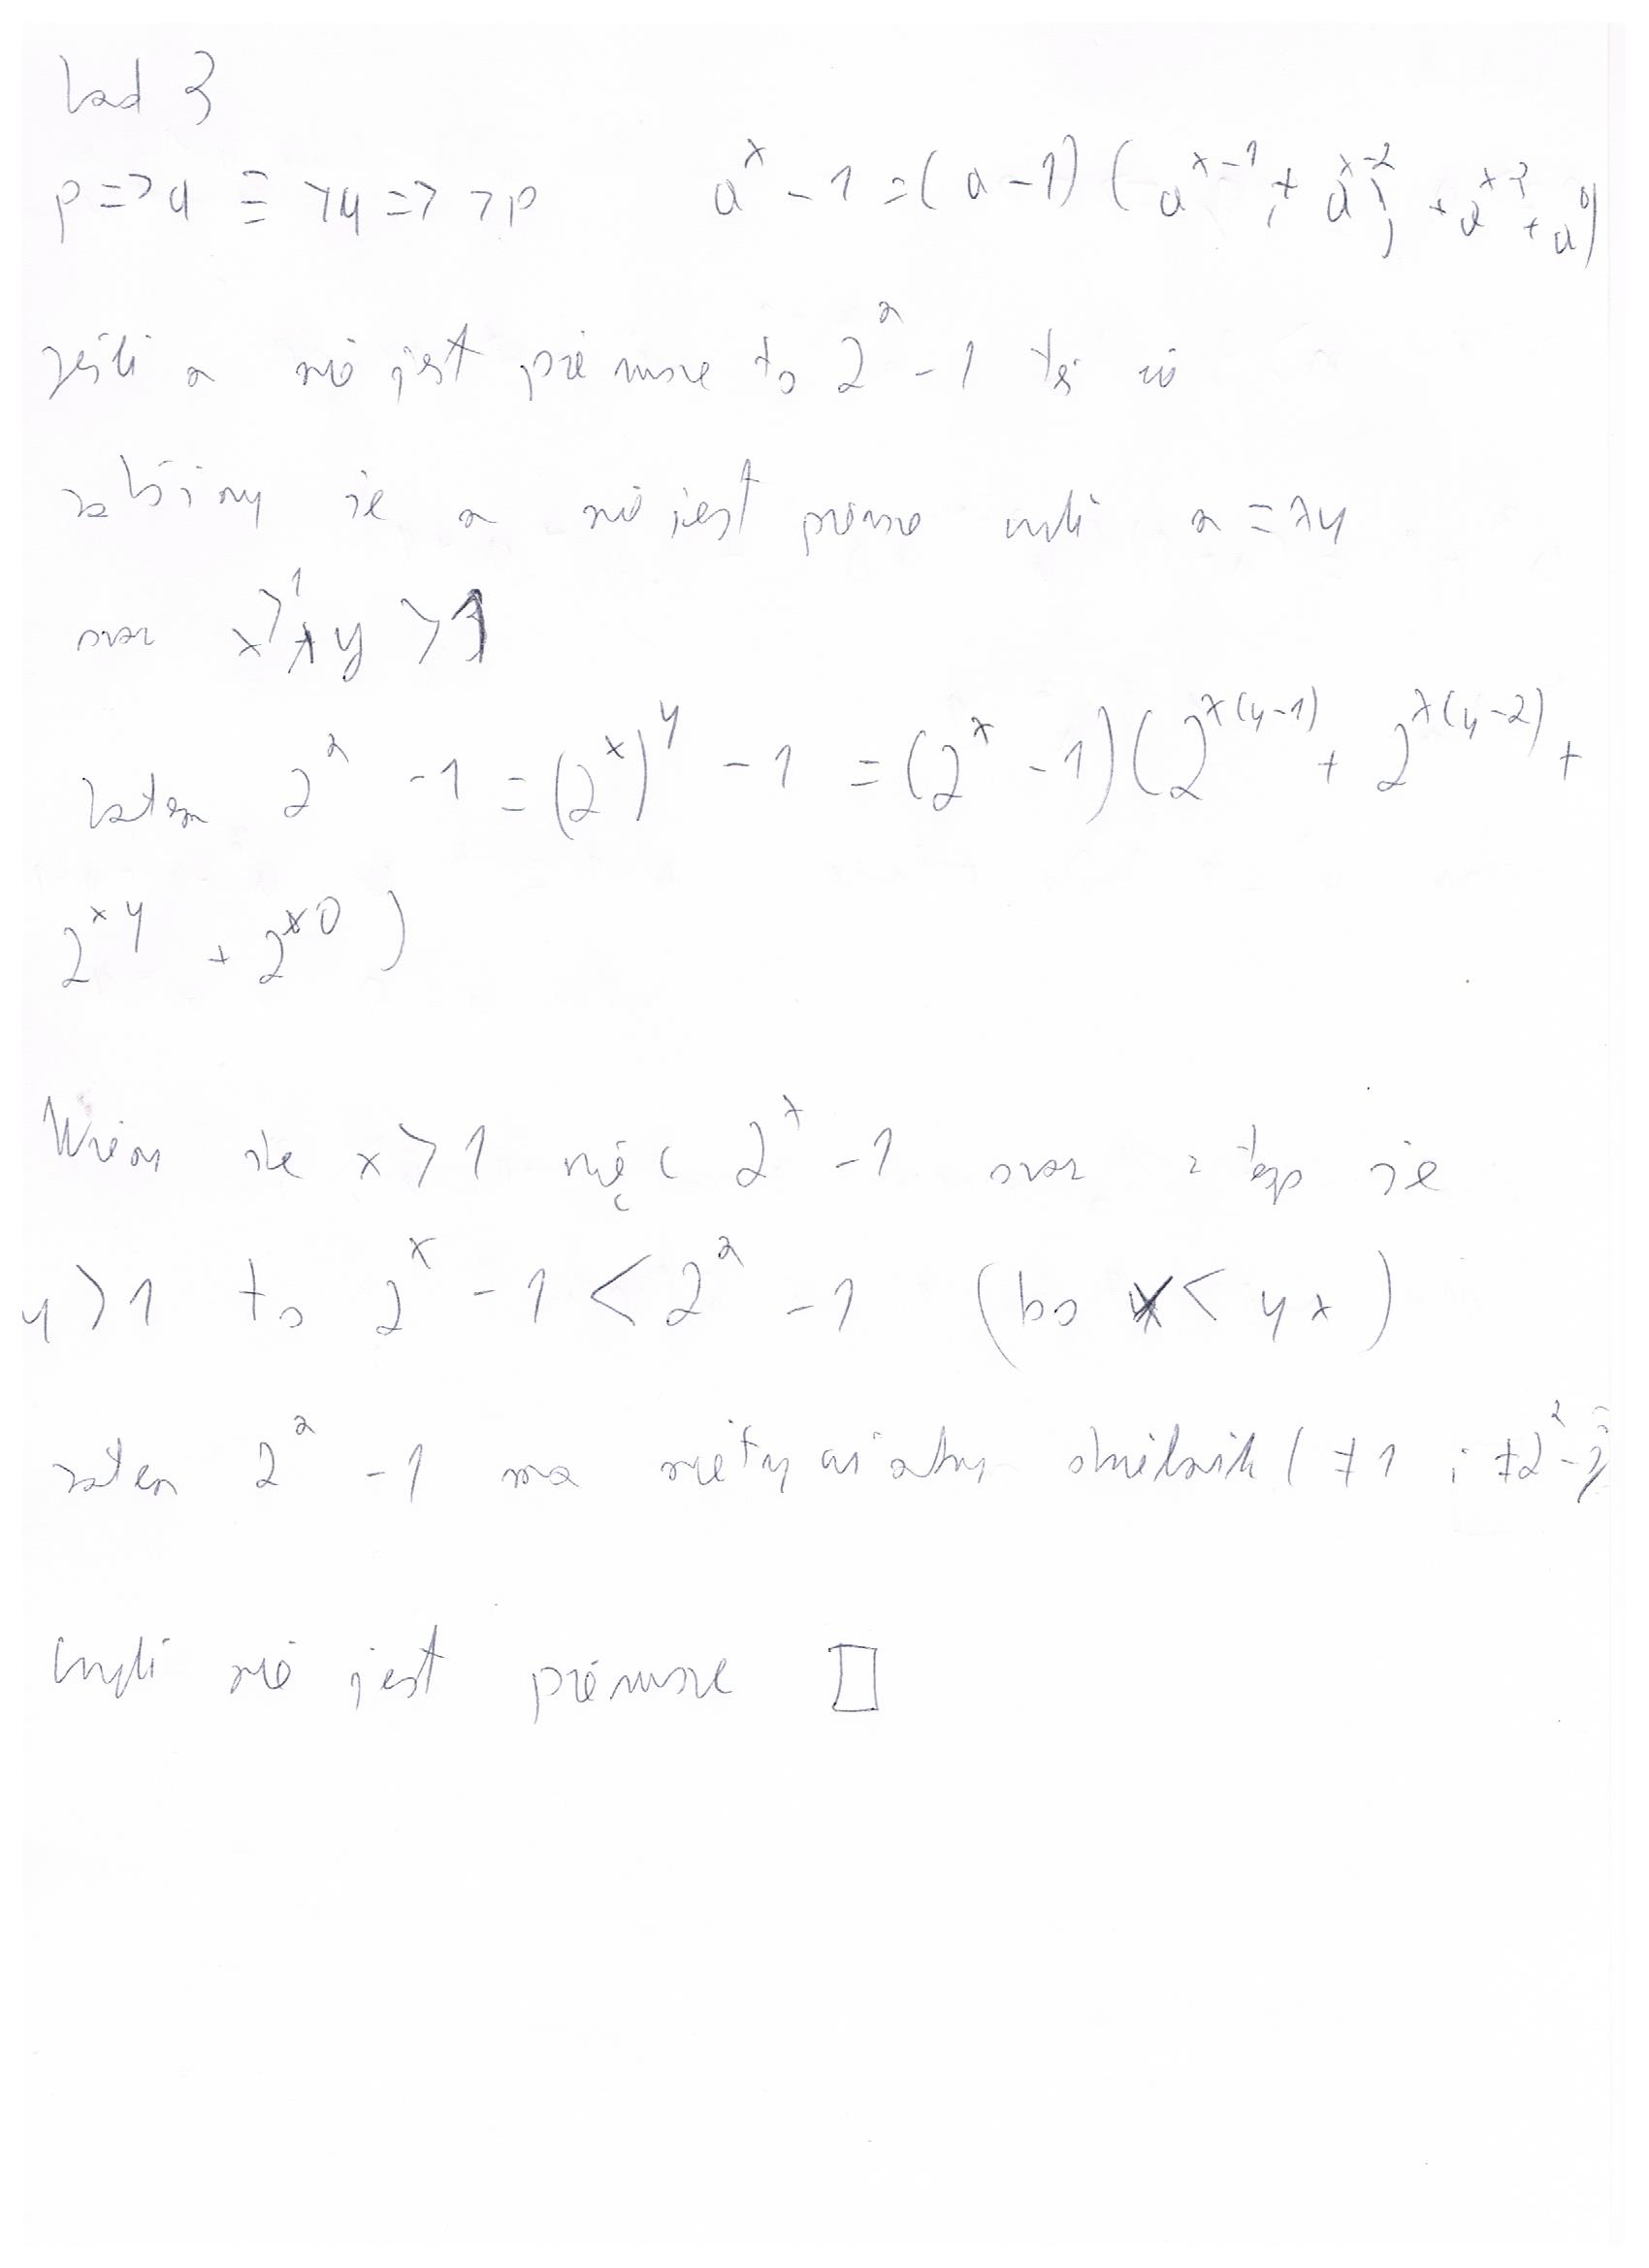 Zad 3
p => q ≡ ¬q => ¬p a^x - 1 = (a - 1) (a^{x-1} + a^{x-2} + a^{x-3} + a^0)
Jeśli a nie jest pierwsze to 2^a - 1 też nie
załóżmy że a nie jest pierwsze czyli a = xy
oraz x > 1 i y > 1
Zatem 2^a - 1 = (2^x)^y - 1 = (2^x - 1) (2^{x(y-1)} + 2^{x(y-2)} +
2^{xy} + 2^{x0})
Wiem że x > 1 więc 2^x - 1 oraz z tego że
y > 1 to 2^x - 1 < 2^a - 1 (bo x < yx)
zatem 2^a - 1 ma nietrywialny dzielnik (≠ 1 i ≠ 2^a - 1)
czyli nie jest pierwsze □